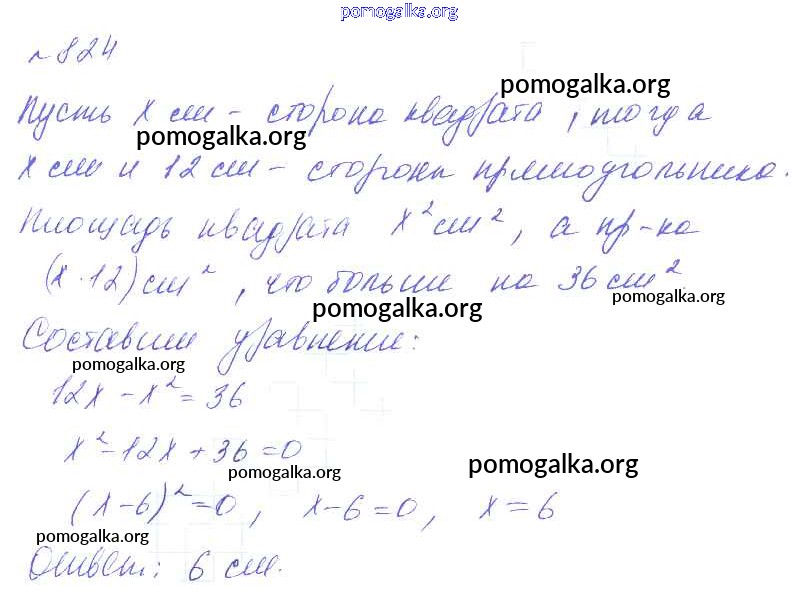 pomogalka.org
№824
pomogalka.org
Пусть x см - сторона квадрата, тогда
pomogalka.org
x см и 12 см - стороны прямоугольника.
Площадь квадрата x² см², а пр-ка
(x · 12) см², что больше на 36 см²
pomogalka.org
pomogalka.org
Составим уравнение:
pomogalka.org
12x - x² = 36
x² - 12x + 36 = 0
pomogalka.org
pomogalka.org
(x - 6)² = 0, x - 6 = 0, x = 6
pomogalka.org
Ответ: 6 см.